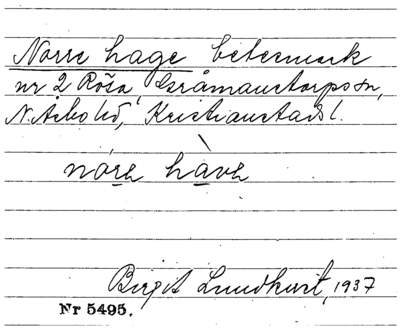 Norre hage betesmark
nr 2 Röša, Gråmanstorps sn,
N. Åsbo hd, Kristianstads l.
nóre hàve
Birgit Lundkvist, 1937
Nr 5495.